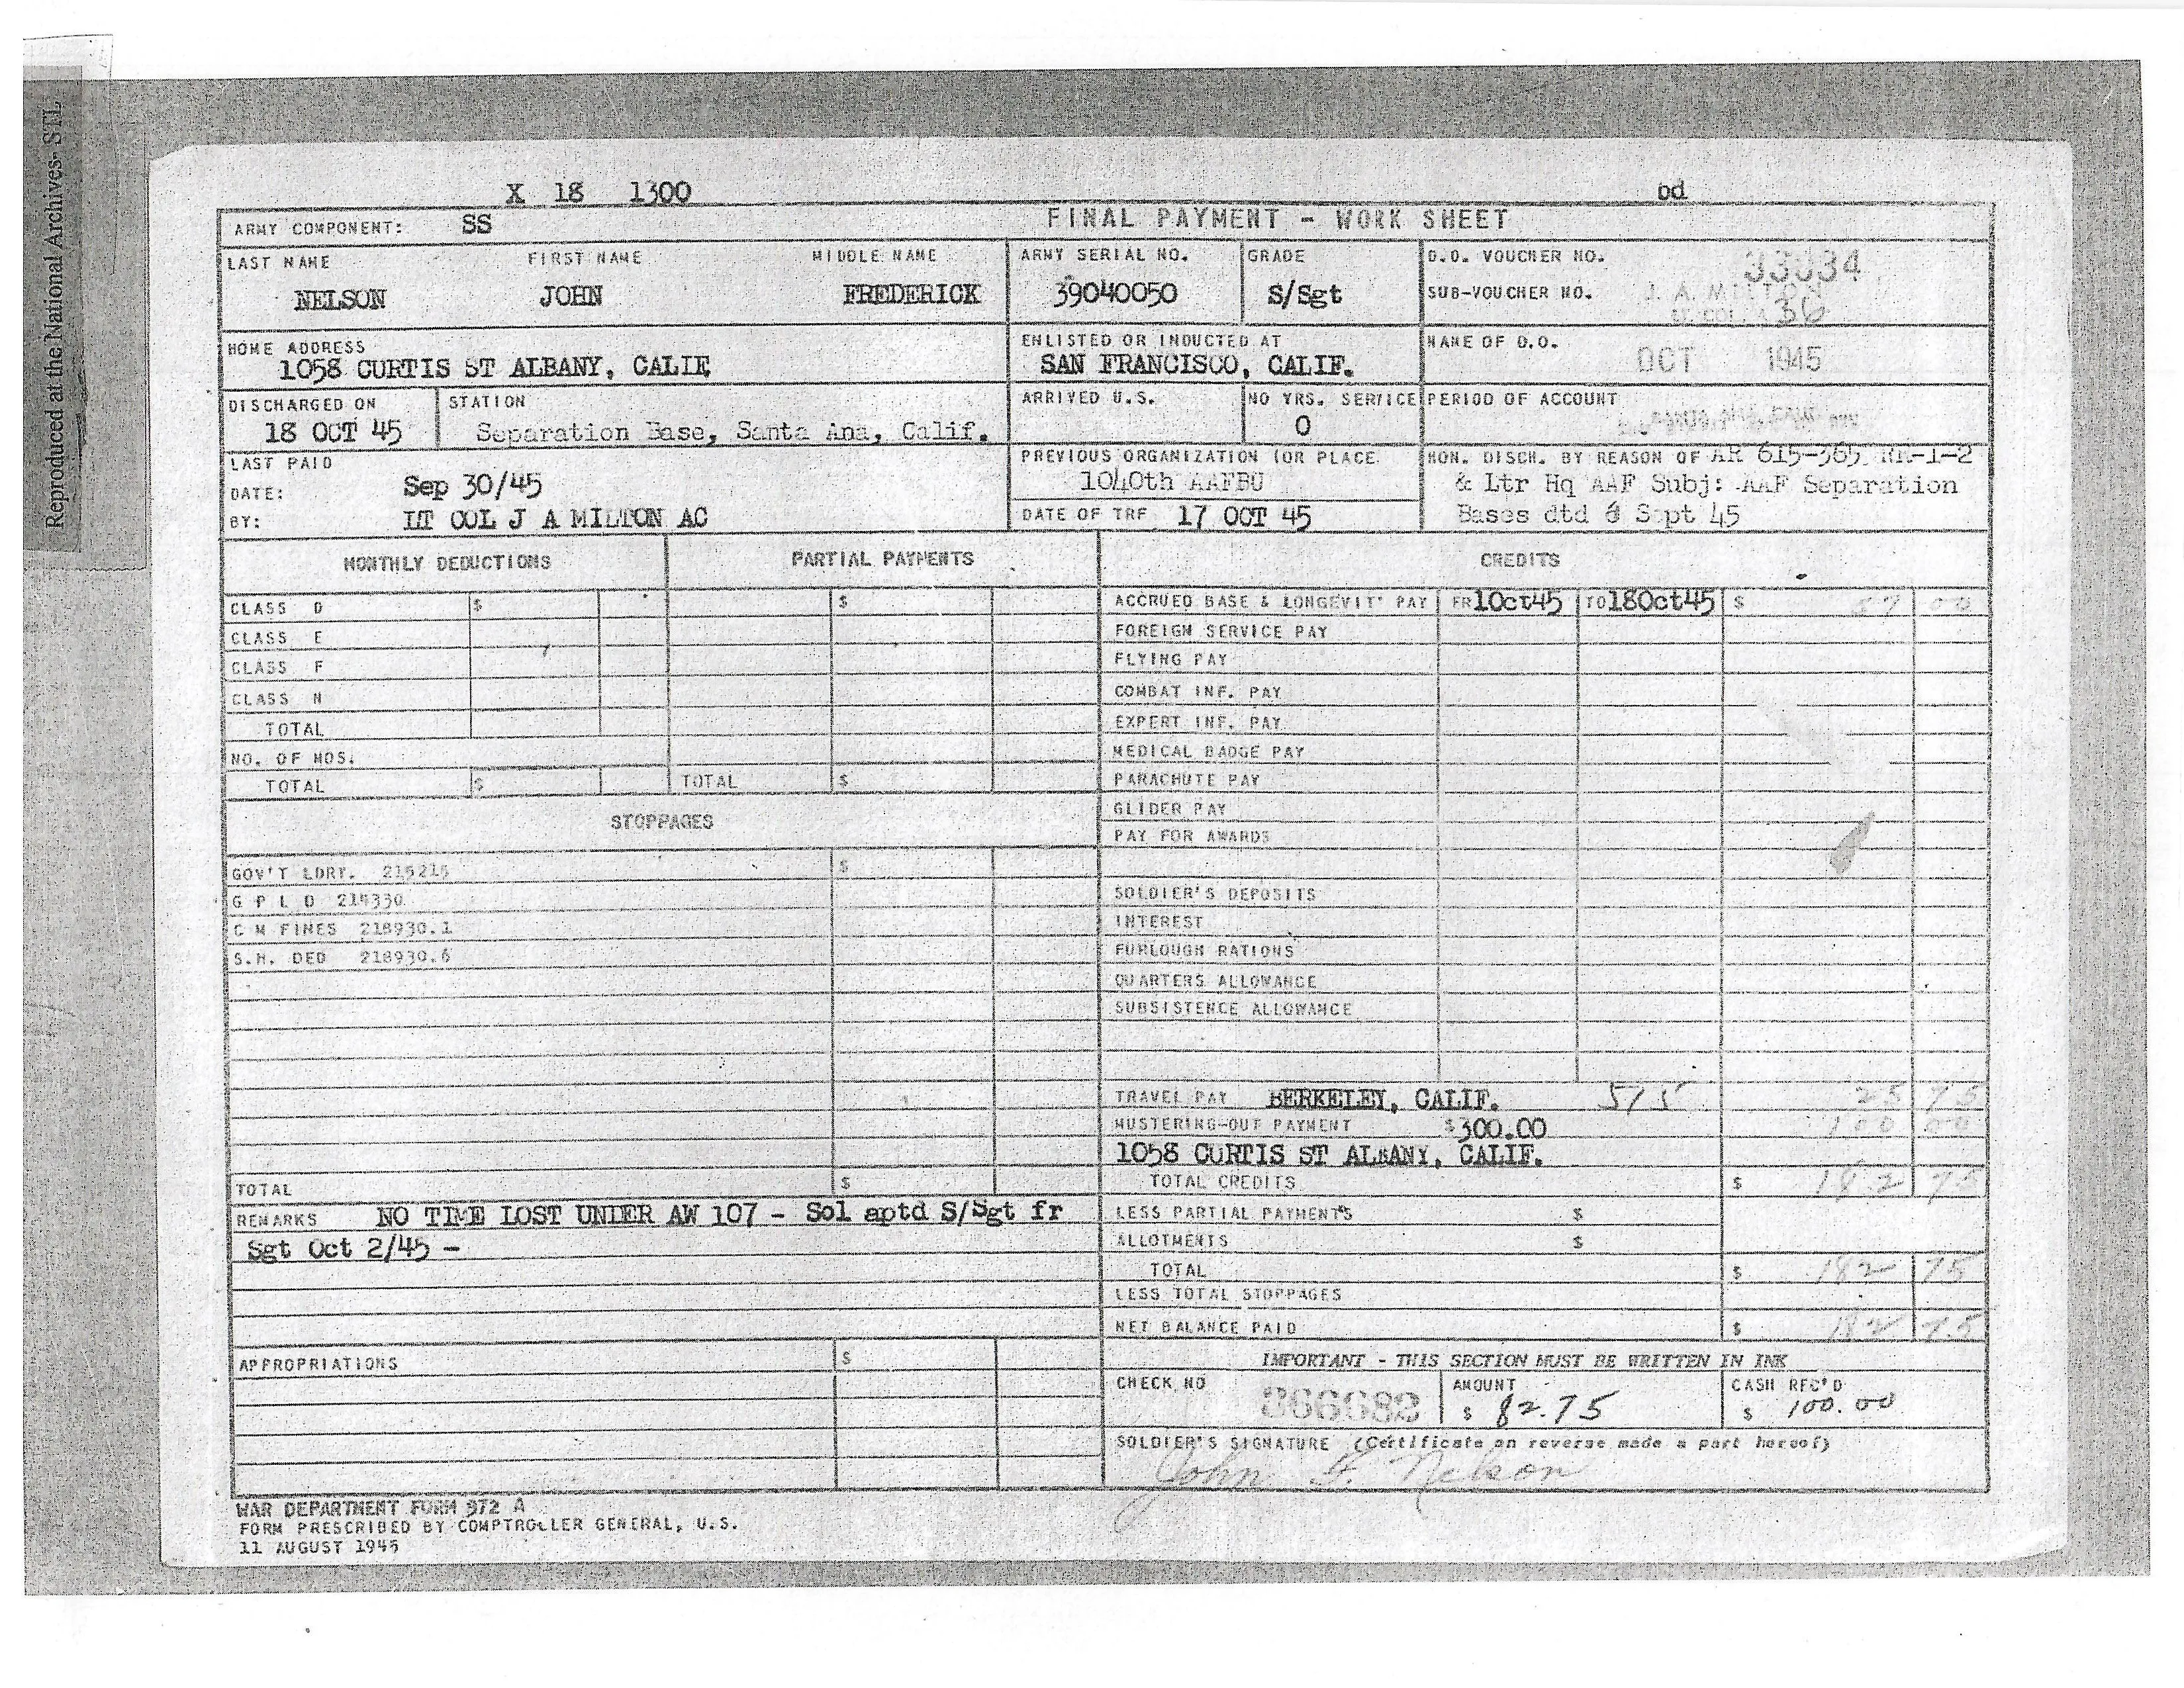 Reproduced at the National Archives- STL
X 18 1300
bd
ARMY COMPONENT: SS
FINAL PAYMENT - WORK SHEET
LAST NAME FIRST NAME MIDDLE NAME
NELSON JOHN FREDERICK
ARMY SERIAL NO.
39040050
GRADE
S/Sgt
D.O. VOUCHER NO.
SUB-VOUCHER NO. 36
HOME ADDRESS
1058 CURTIS ST ALBANY, CALIF
ENLISTED OR INDUCTED AT
SAN FRANCISCO, CALIF.
NAME OF D.O.
OCT 1945
DISCHARGED ON
18 OCT 45
STATION
Separation Base, Santa Ana, Calif.
ARRIVED U.S.
NO YRS. SERVICE
0
PERIOD OF ACCOUNT
LAST PAID
DATE: Sep 30/45
BY: LT COL J A MILTON AC
PREVIOUS ORGANIZATION (OR PLACE
1040th AAFBU
DATE OF TRF 17 OCT 45
HON. DISCH. BY REASON OF AR 615-365 RR-1-2
& Ltr Hq AAF Subj: AAF Separation
Bases dtd 6 Sept 45
MONTHLY DEDUCTIONS
PARTIAL PAYMENTS
CREDITS
CLASS D $
$
CLASS E
CLASS F
CLASS N
TOTAL
NO. OF MOS.
TOTAL $
TOTAL $
ACCRUED BASE & LONGEVIT' PAY FR 1Oct45 TO 18Oct45 $ 57 00
FOREIGN SERVICE PAY
FLYING PAY
COMBAT INF. PAY
EXPERT INF. PAY
MEDICAL BADGE PAY
PARACHUTE PAY
GLIDER PAY
PAY FOR AWARDS
STOPPAGES
GOV'T LDRY. 215215 $
G P L D 214330
C M FINES 218930.1
S.H. DED 218930.6
SOLDIER'S DEPOSITS
INTEREST
FURLOUGH RATIONS
QUARTERS ALLOWANCE
SUBSISTENCE ALLOWANCE
TRAVEL PAY BERKELEY, CALIF. 515 25 75
MUSTERING-OUT PAYMENT $300.00 100 00
1058 CURTIS ST ALBANY, CALIF.
TOTAL $
TOTAL CREDITS $ 182 75
REMARKS NO TIME LOST UNDER AW 107 - Sol aptd S/Sgt fr
Sgt Oct 2/45 -
LESS PARTIAL PAYMENTS $
ALLOTMENTS $
TOTAL $ 182 75
LESS TOTAL STOPPAGES
NET BALANCE PAID $ 182 75
APPROPRIATIONS $
IMPORTANT - THIS SECTION MUST BE WRITTEN IN INK
CHECK NO 366682
AMOUNT
$ 82.75
CASH REC'D
$ 100.00
SOLDIER'S SIGNATURE (Certificate on reverse made a part hereof)
John F. Nelson
WAR DEPARTMENT FORM 372 A
FORM PRESCRIBED BY COMPTROLLER GENERAL, U.S.
11 AUGUST 1945